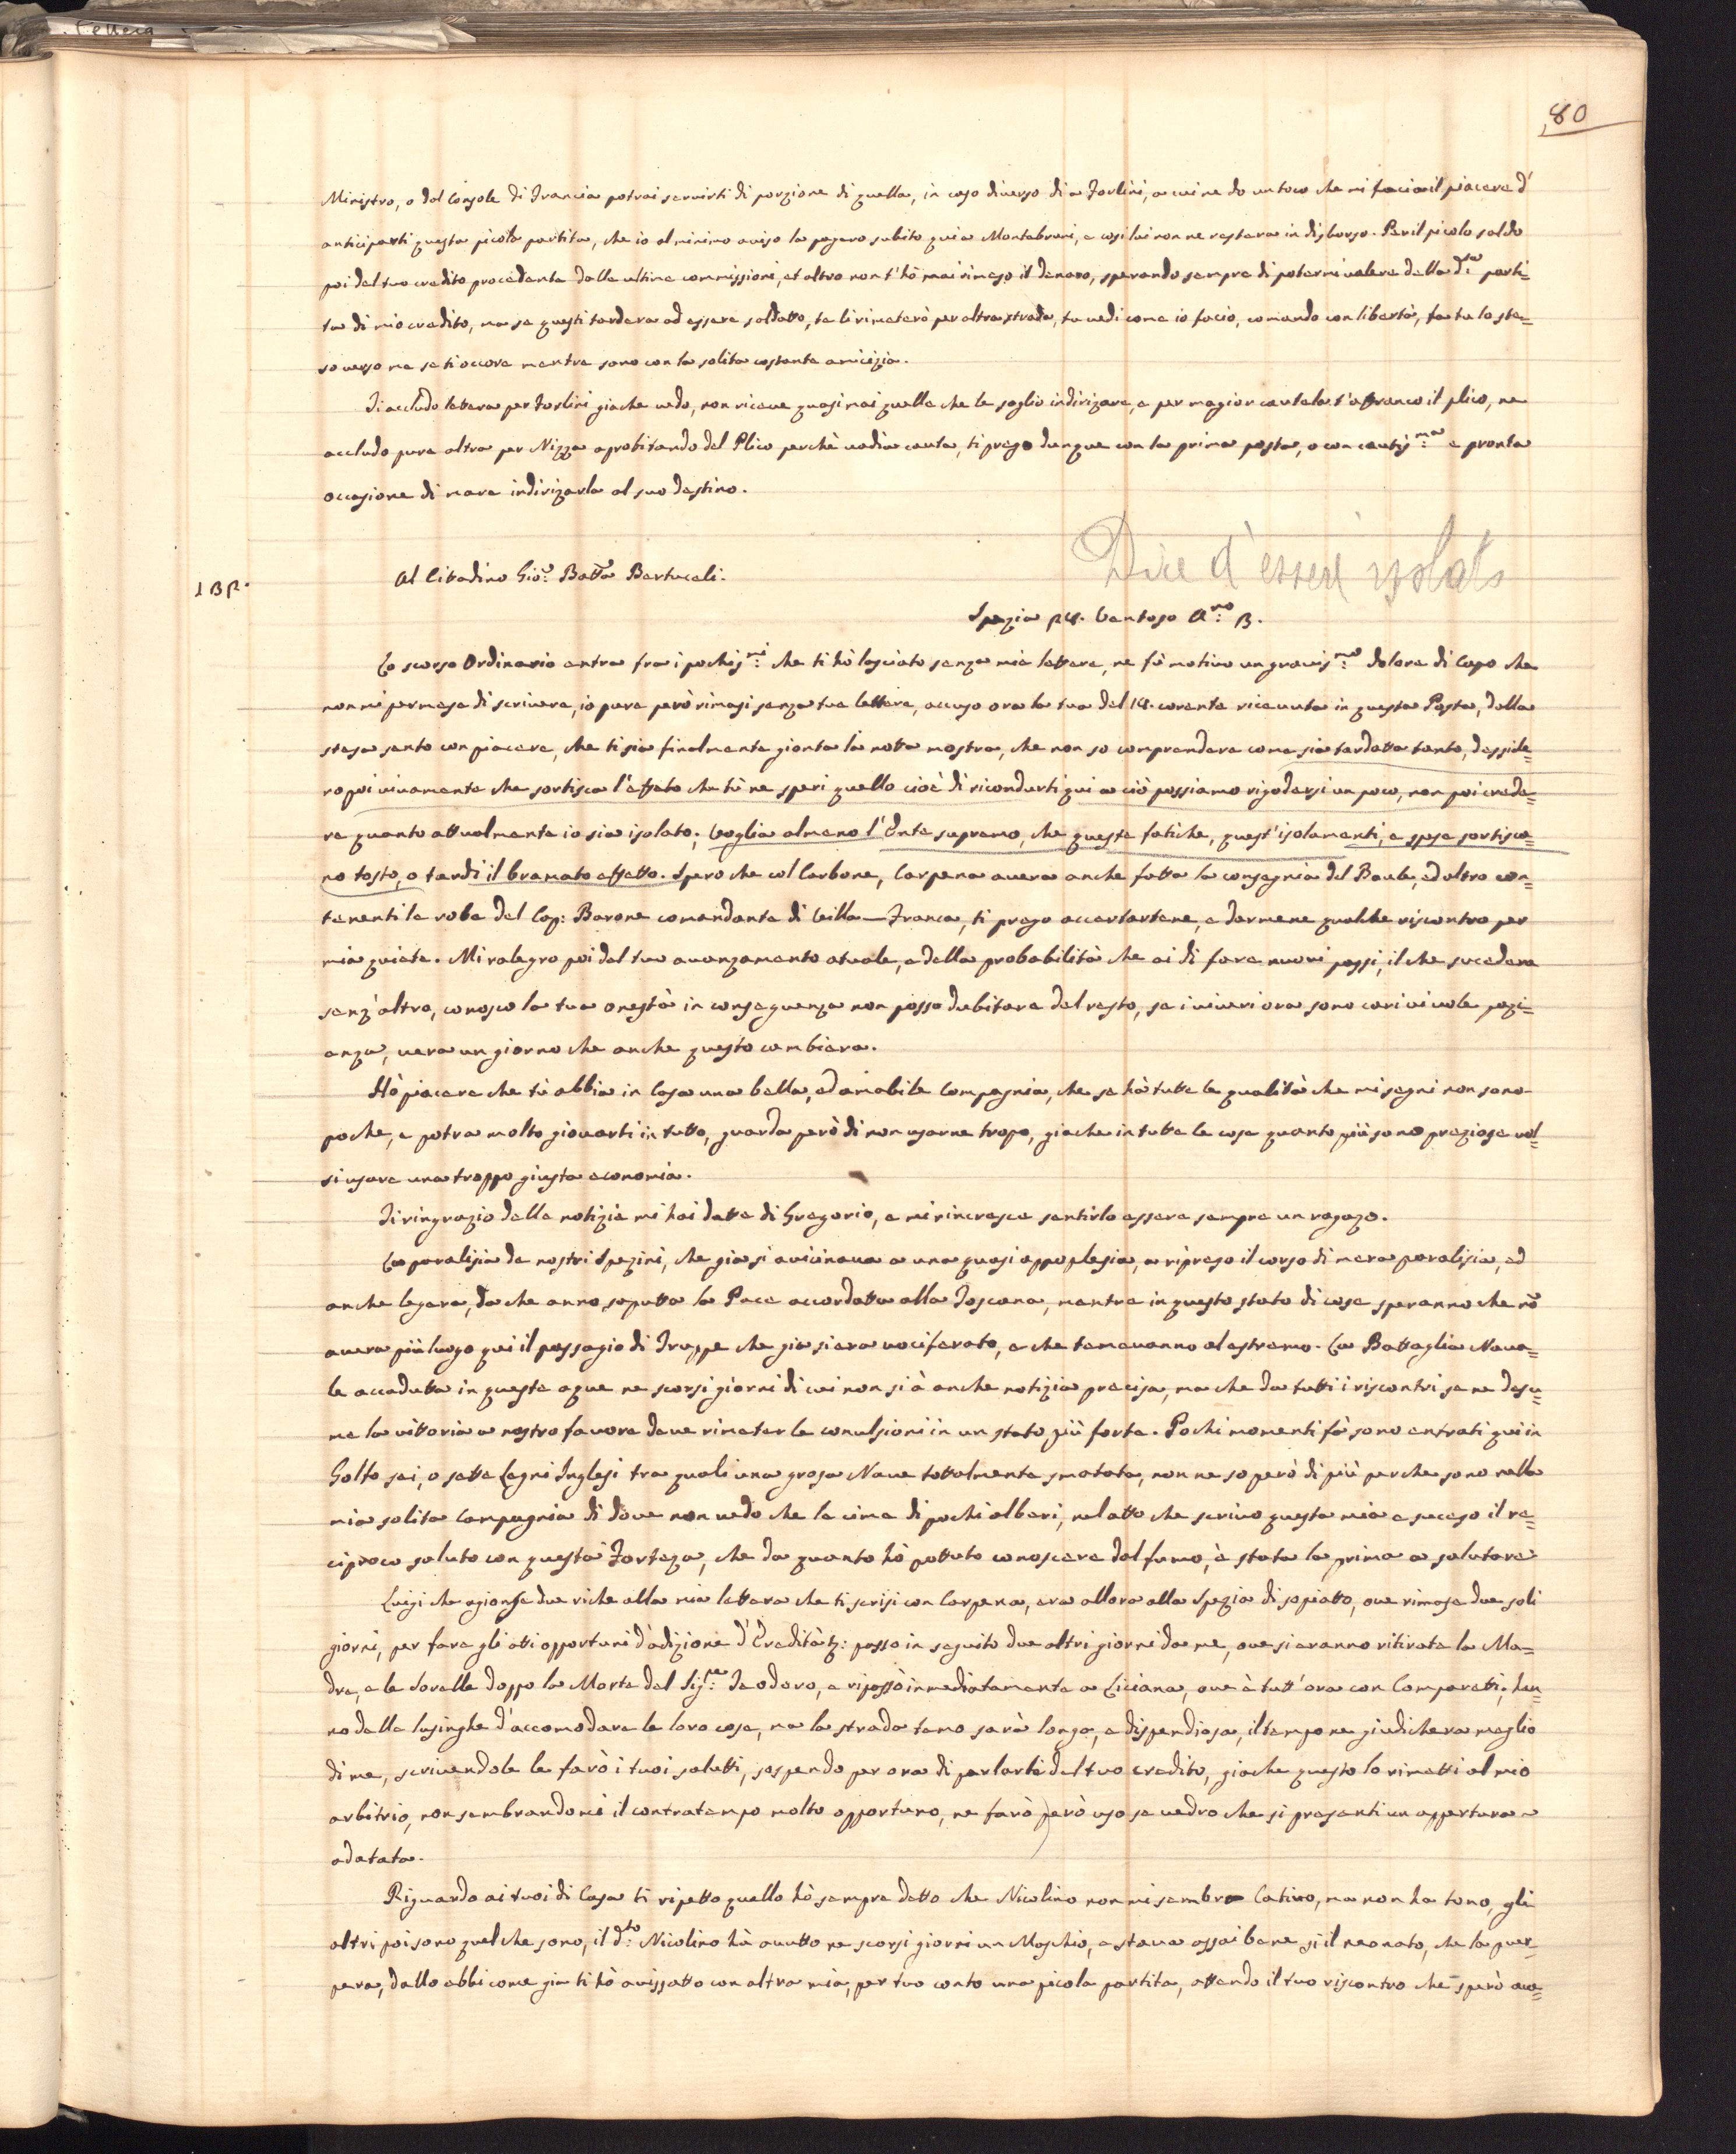 80
Ministro, o dal Console di Francia potrai servirti di porzione di quella, in caso diverso di a Forlini, a cui ne do un toco che mi facia il piacere d'
anticiparti questa picola partita, che io al minimo aviso la pagaro subito qui a Montebruni, e cosi lui non ne restera in disborso. Per il picolo saldo
poi del tuo credito procedente dalle ultime commissioni, et altro non t'hò mai rimeso il denaro, sperando sempre di potermi valere della d:ta parti=
ta di mio credito, ma se questi tardera ad essere soldatto, te li rimeterò per altra strada, tu vedi come io facio, comando con libertà, fa tu lo ste=
so verso me se ti occore mentre sono con la solita costante amicizia.
Ti accludo lettera per Forlini giache vedo, non riceve quasi mai quelle che le soglio indirizare, e per magior cautela t'afranco il plico, ne
accludo pure altra per Nizza aprofitando del Plico perchè vadia cauta, ti prego dunque con la prima posta, o con cautis:ma e pronta
occasione di mare indirizarla al suo destino.
Dire d'essere isolato
1 B R.
Al Cittadino Gio: Batta Bertuceli.
Spezia 24. Ventoso A:no 3.
Lo scorso Ordinario entra fra i pochis:mi che ti hò lasciato senza mie lettere, ne fù motivo un gravis:mo dolore di Capo che
non mi permese di scrivere, io pure però rimasi senza tue lettere, accuso ora la tua del 14. corente ricevuta in questa Posta, dalla
stesa sento con piacere, che ti sia finalmente gionta la notta mostra, che non so comprendere come sia tardatta tanto, desside=
ro poi vivamente che sortisca l'effeto che tù ne speri quello cioè di ricondurti qui a ciò possiamo rigodersi un poco, non poi crede=
re quanto attualmente io sia isolato; Voglia almeno l'Ente supremo, che queste fatiche, quest'isolamenti, e spese sortisca=
no tosto, o tardi il bramato effetto. Spero che col Carbone, Carpena avera anche fatta la consegnia del Baule, ed altro con=
tenenti le robe del Cap: Barone comandante di Villa-Franca, ti prego accertartene, e darmene qualche riscontro per
mia quiete. Mi ralegro poi del tuo avanzamento atuale, e della probabilità che ai di fare nuovi passi, il che sucedera
senz'altro, conosco la tua onestà in conseguenza non posso dubitare del resto, se i viveri ora sono cari vi vole pazi=
enza, vera un giorno che anche questo cambiera.
Hò piacere che tù abbia in Casa una bella, ed amabile Compagnia, che se hà tutte le qualità che mi segni non sono
poche, e potra molto giovarti in tutto, guarda però di non usarne tropo, giache in tutte le cose quanto più sono preziose vol=
si usare una troppo giusta economia.
Ti ringrazio delle notizie mi hai datte di Gregorio, e mi rincresce sentirlo essere sempre un ragazo.
La paralisia de nostri Spezini, che gia si avicinava a una quasi appoplesia, a ripreso il corso di mera paralisia, ed
anche legera, da che anno saputta la Pace accordatta alla Toscana, mentre in questo stato di cose speranno che nõ
avera più luogo qui il passagio di Truppe che gia si era vociferato, e che temevanno al estremo. La Battaglia Nava=
le accadutta in queste aque ne scorsi giorni di cui non si à anche notizia precisa, ma che da tutti i riscontri se ne desu=
me la vittoria a nostro favore deve rimeter le convulsioni in un stato più forte. Pochi momenti fà sono entrati qui in
Golfo sei, o sette Legni Inglesi tra quali una grosa Nave tottalmente smatata, non ne so però di più perche sono nella
mia solita Campagnia di dove non vedo che le cime di pochi alberi, nel atto che scrivo questa mia e suceso il re=
ciproco saluto con questa Forteza, che da quanto hò pottuto conoscere dal fumo, è stata la prima a salutare
Luigi che agionse due riche alla mia lettera che ti scrisi con Carpena, era allora alla Spezia di sopiatto, ove rimase due soli
giorni, per fare gli atti opportuni d'adizione d'Eredità: passo in seguito due altri giorni da me, ove si eranno ritirate la Ma=
dre, e le Sorelle doppo la Morte del Sig:re Teodoro, e ripassò immediatamente a Liciana, ove è tutt'ora con Comparetti, han=
no delle lusinghe d'accomodare le loro cose, ma la strada temo sarà longa, e dispendiosa, il tempo ne giudichera meglio
di me, scrivendole le farò i tuoi saluti, sospendo per ora di parlarle del tuo credito, giache questo lo rimetti al mio
arbitrio, non sembrandomi il contratempo molto opportuno, ne farò però uso se vedro che si presenti un appertura
adatata.
Riguardo ai tuoi di Casa ti ripetto quello hò sempre detto che Nicolino non mi sembra Cativo, ma non ha tono, gli
altri poi sono quel che sono, il d:to Nicolino hà avutto ne scorsi giorni un Maschio, e stava assai bene si il neonato, che la puer=
pera, dallo abbi come gia ti hò avissatto con altra mia, per tuo conto una picola partita, attendo il tuo riscontro che sperò ave=